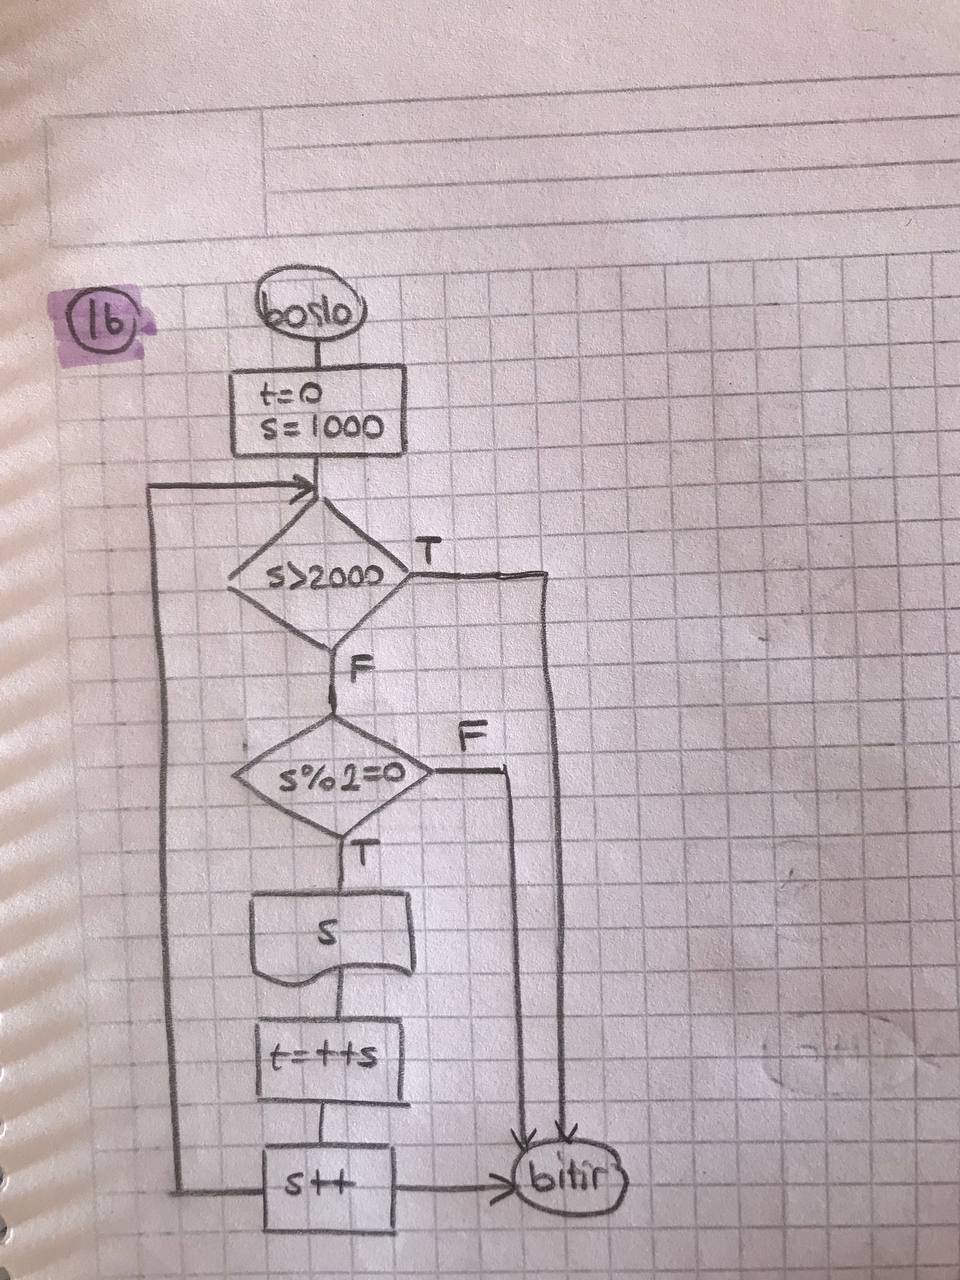 16
başla
t=0
s=1000
s>2000
T
F
s%2=0
F
T
s
t=++s
s++
bitir